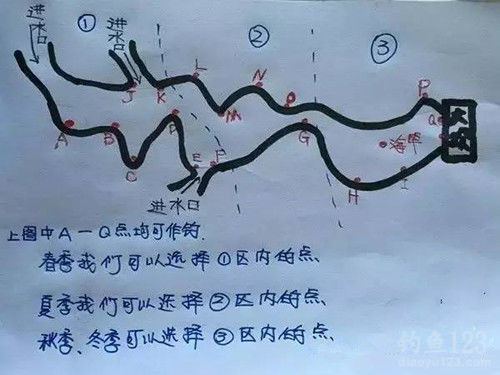 进水口
①
进水口
②
③
L
N
P
J
K
M
Q
大坝
A
B
D
G
海竿
C
E
F
H
I
进水口
上图中A—Q点均可作钓.
春季我们可以选择①区内的点、
夏季我们可以选择②区内的点、
秋季、冬季可以选择③区内的点、
钓鱼123
diaoyu123.com